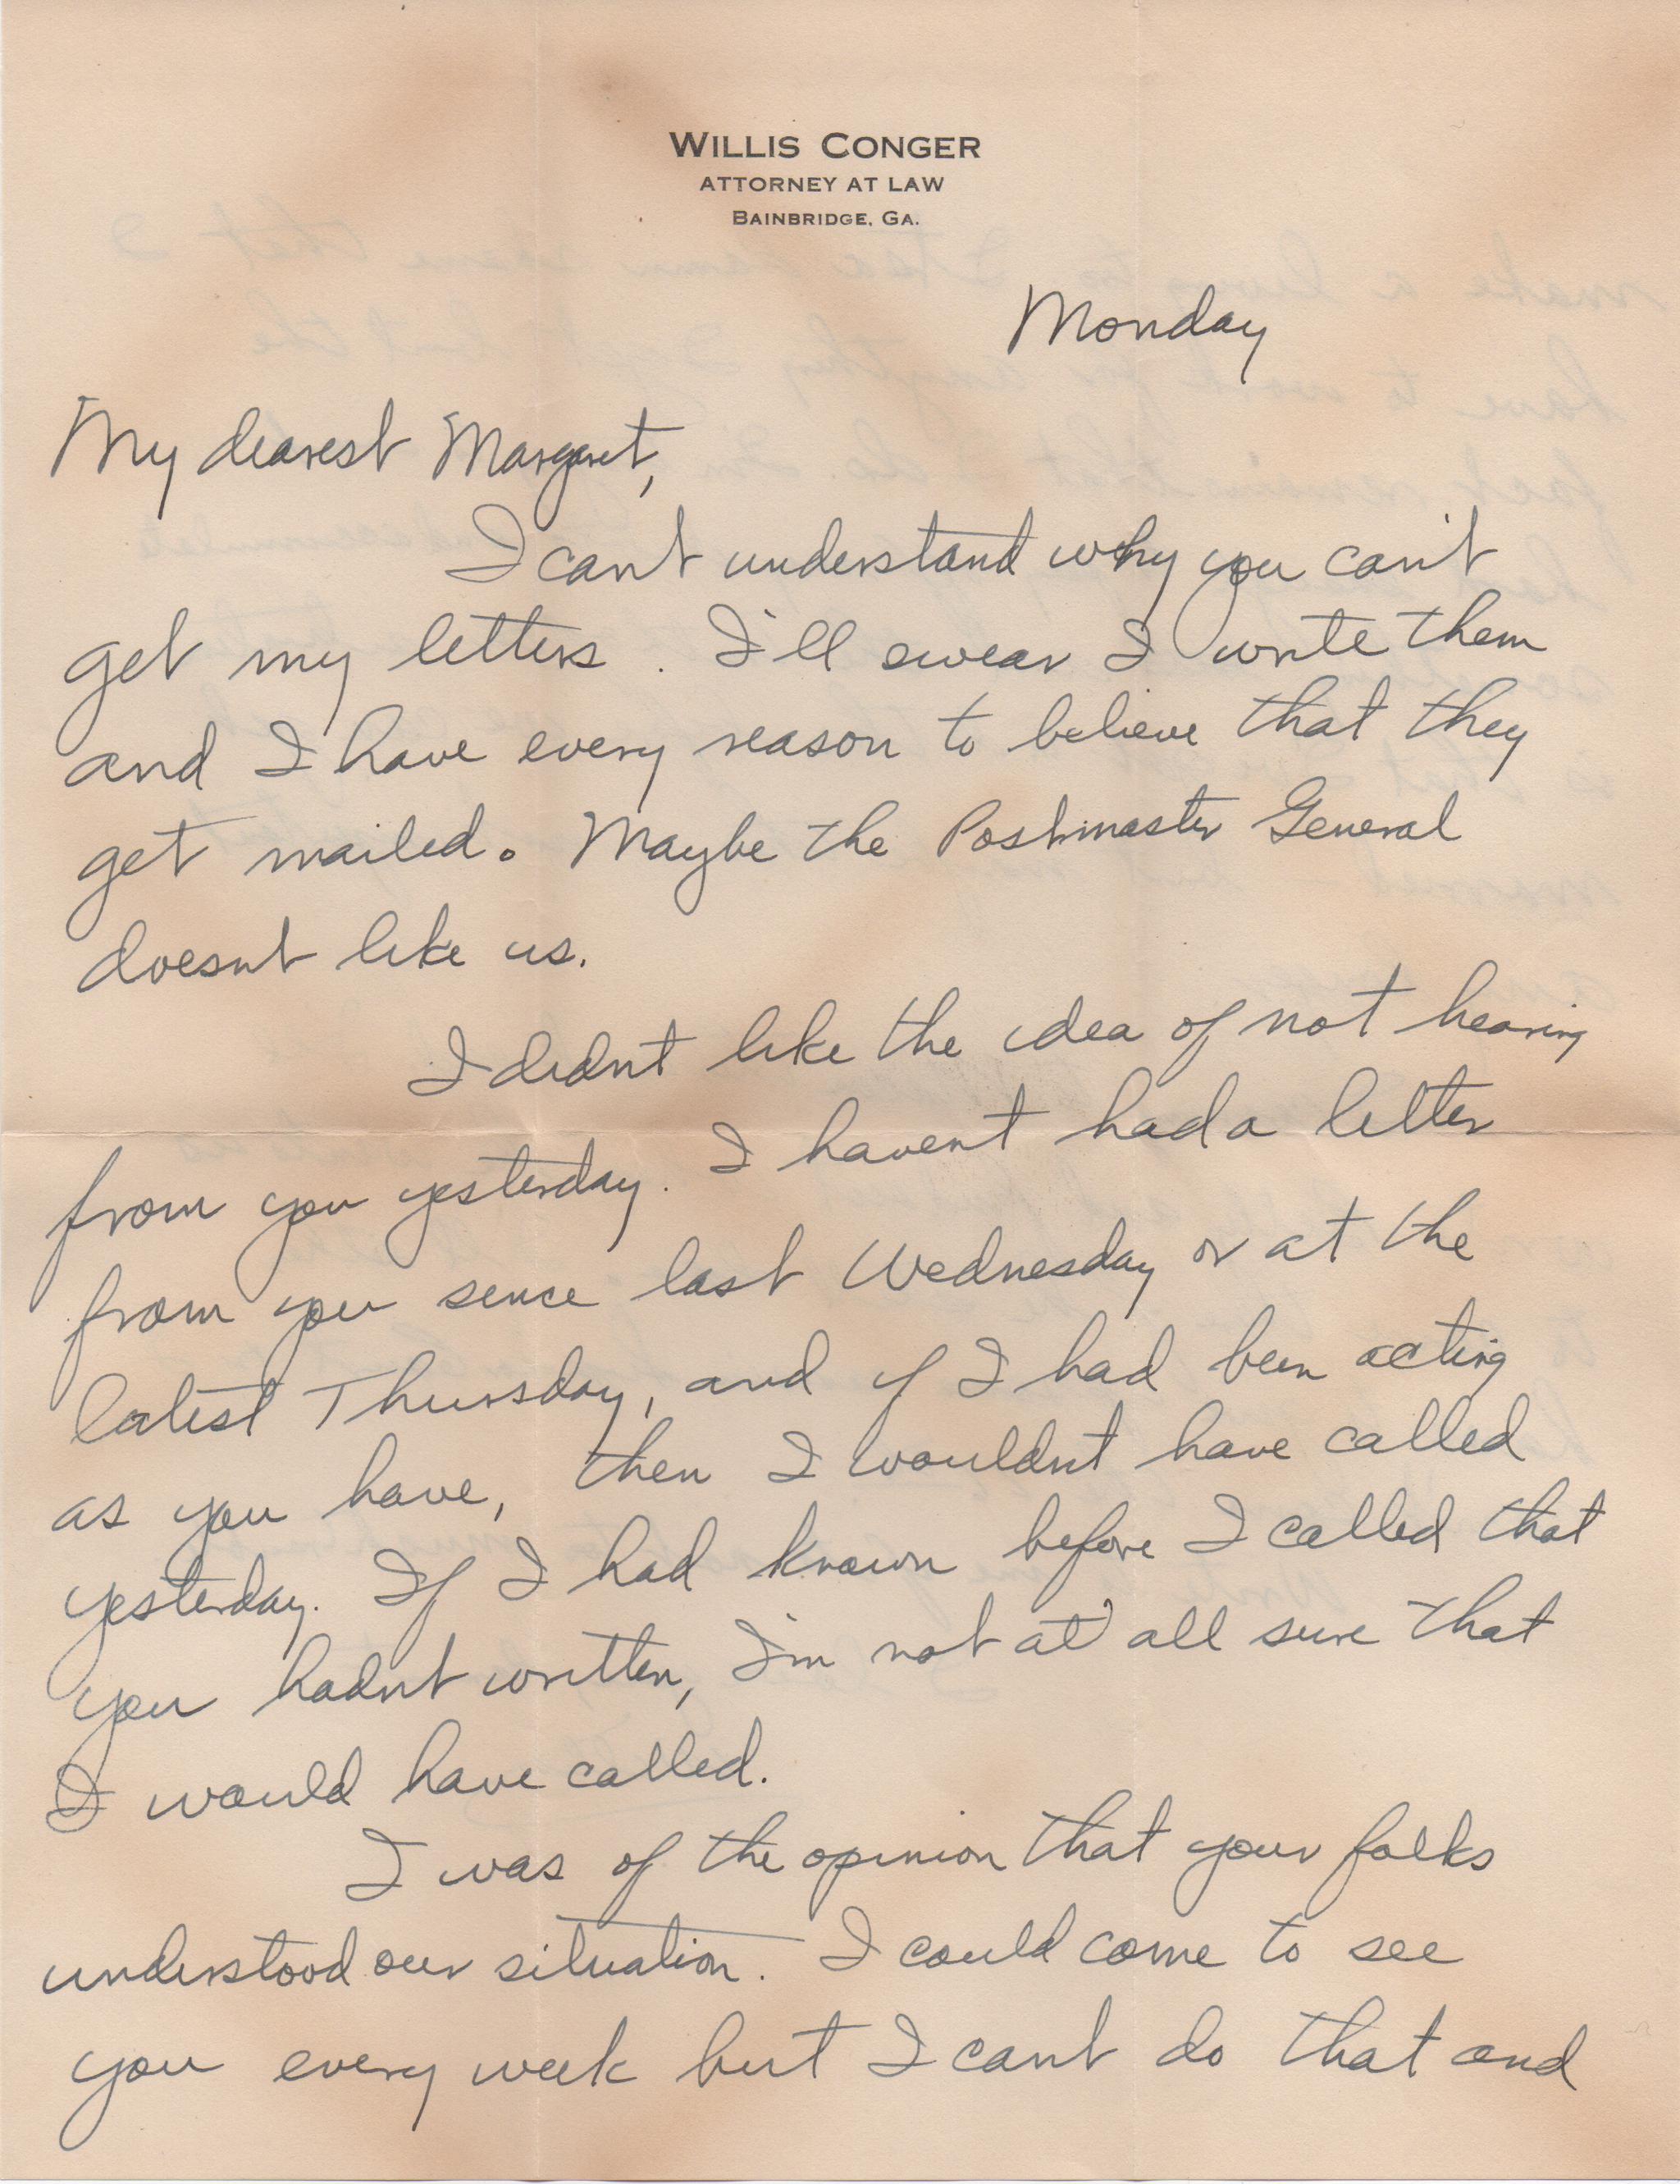 WILLIS CONGER
ATTORNEY AT LAW
BAINBRIDGE, GA.
Monday
My dearest Margaret,
I can't understand why you can't
get my letters. I'll swear I write them
and I have every reason to believe that they
get mailed. Maybe the Postmaster General
doesnt like us.
I didnt like the idea of not hearing
from you yesterday. I havent had a letter
from you sence last Wednesday or at the
latest Thursday, and if I had been acting
as you have, then I wouldnt have called
yesterday. If I had known before I called that
you hadnt written, I'm not at all sure that
I would have called.
I was of the opinion that your folks
understood our situation. I could come to see
you every week but I cant do that and